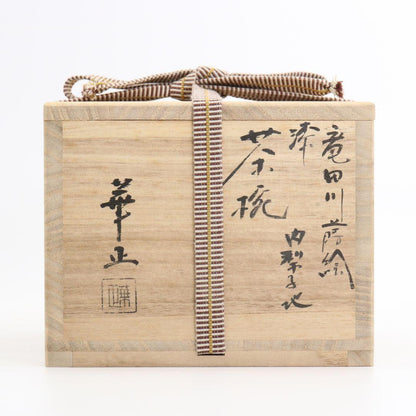 竜田川蒔絵
内梨子地
漆
茶碗
華正